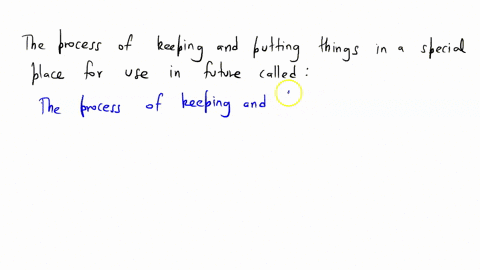 The process of keeping and putting things in a special
place for use in future called :
The process of keeping and